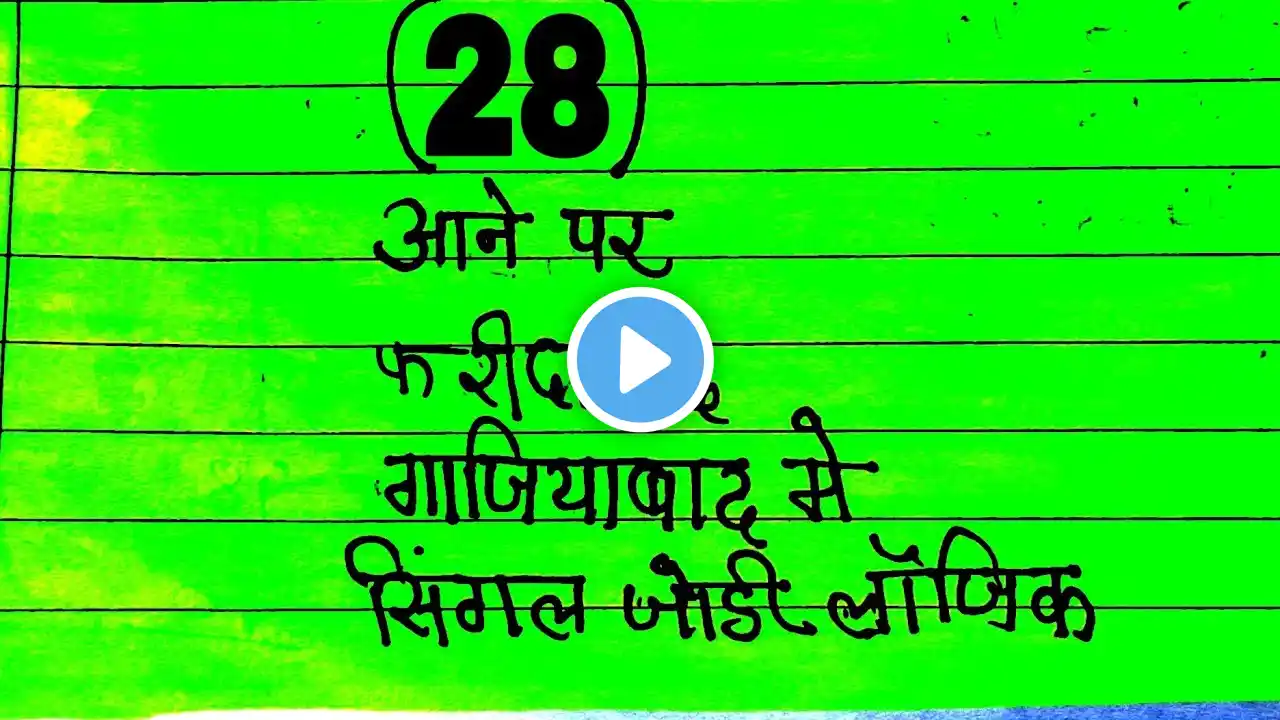 (28)
आने पर
गाजियाबाद मे
सिंगल जोडी लॉजिक